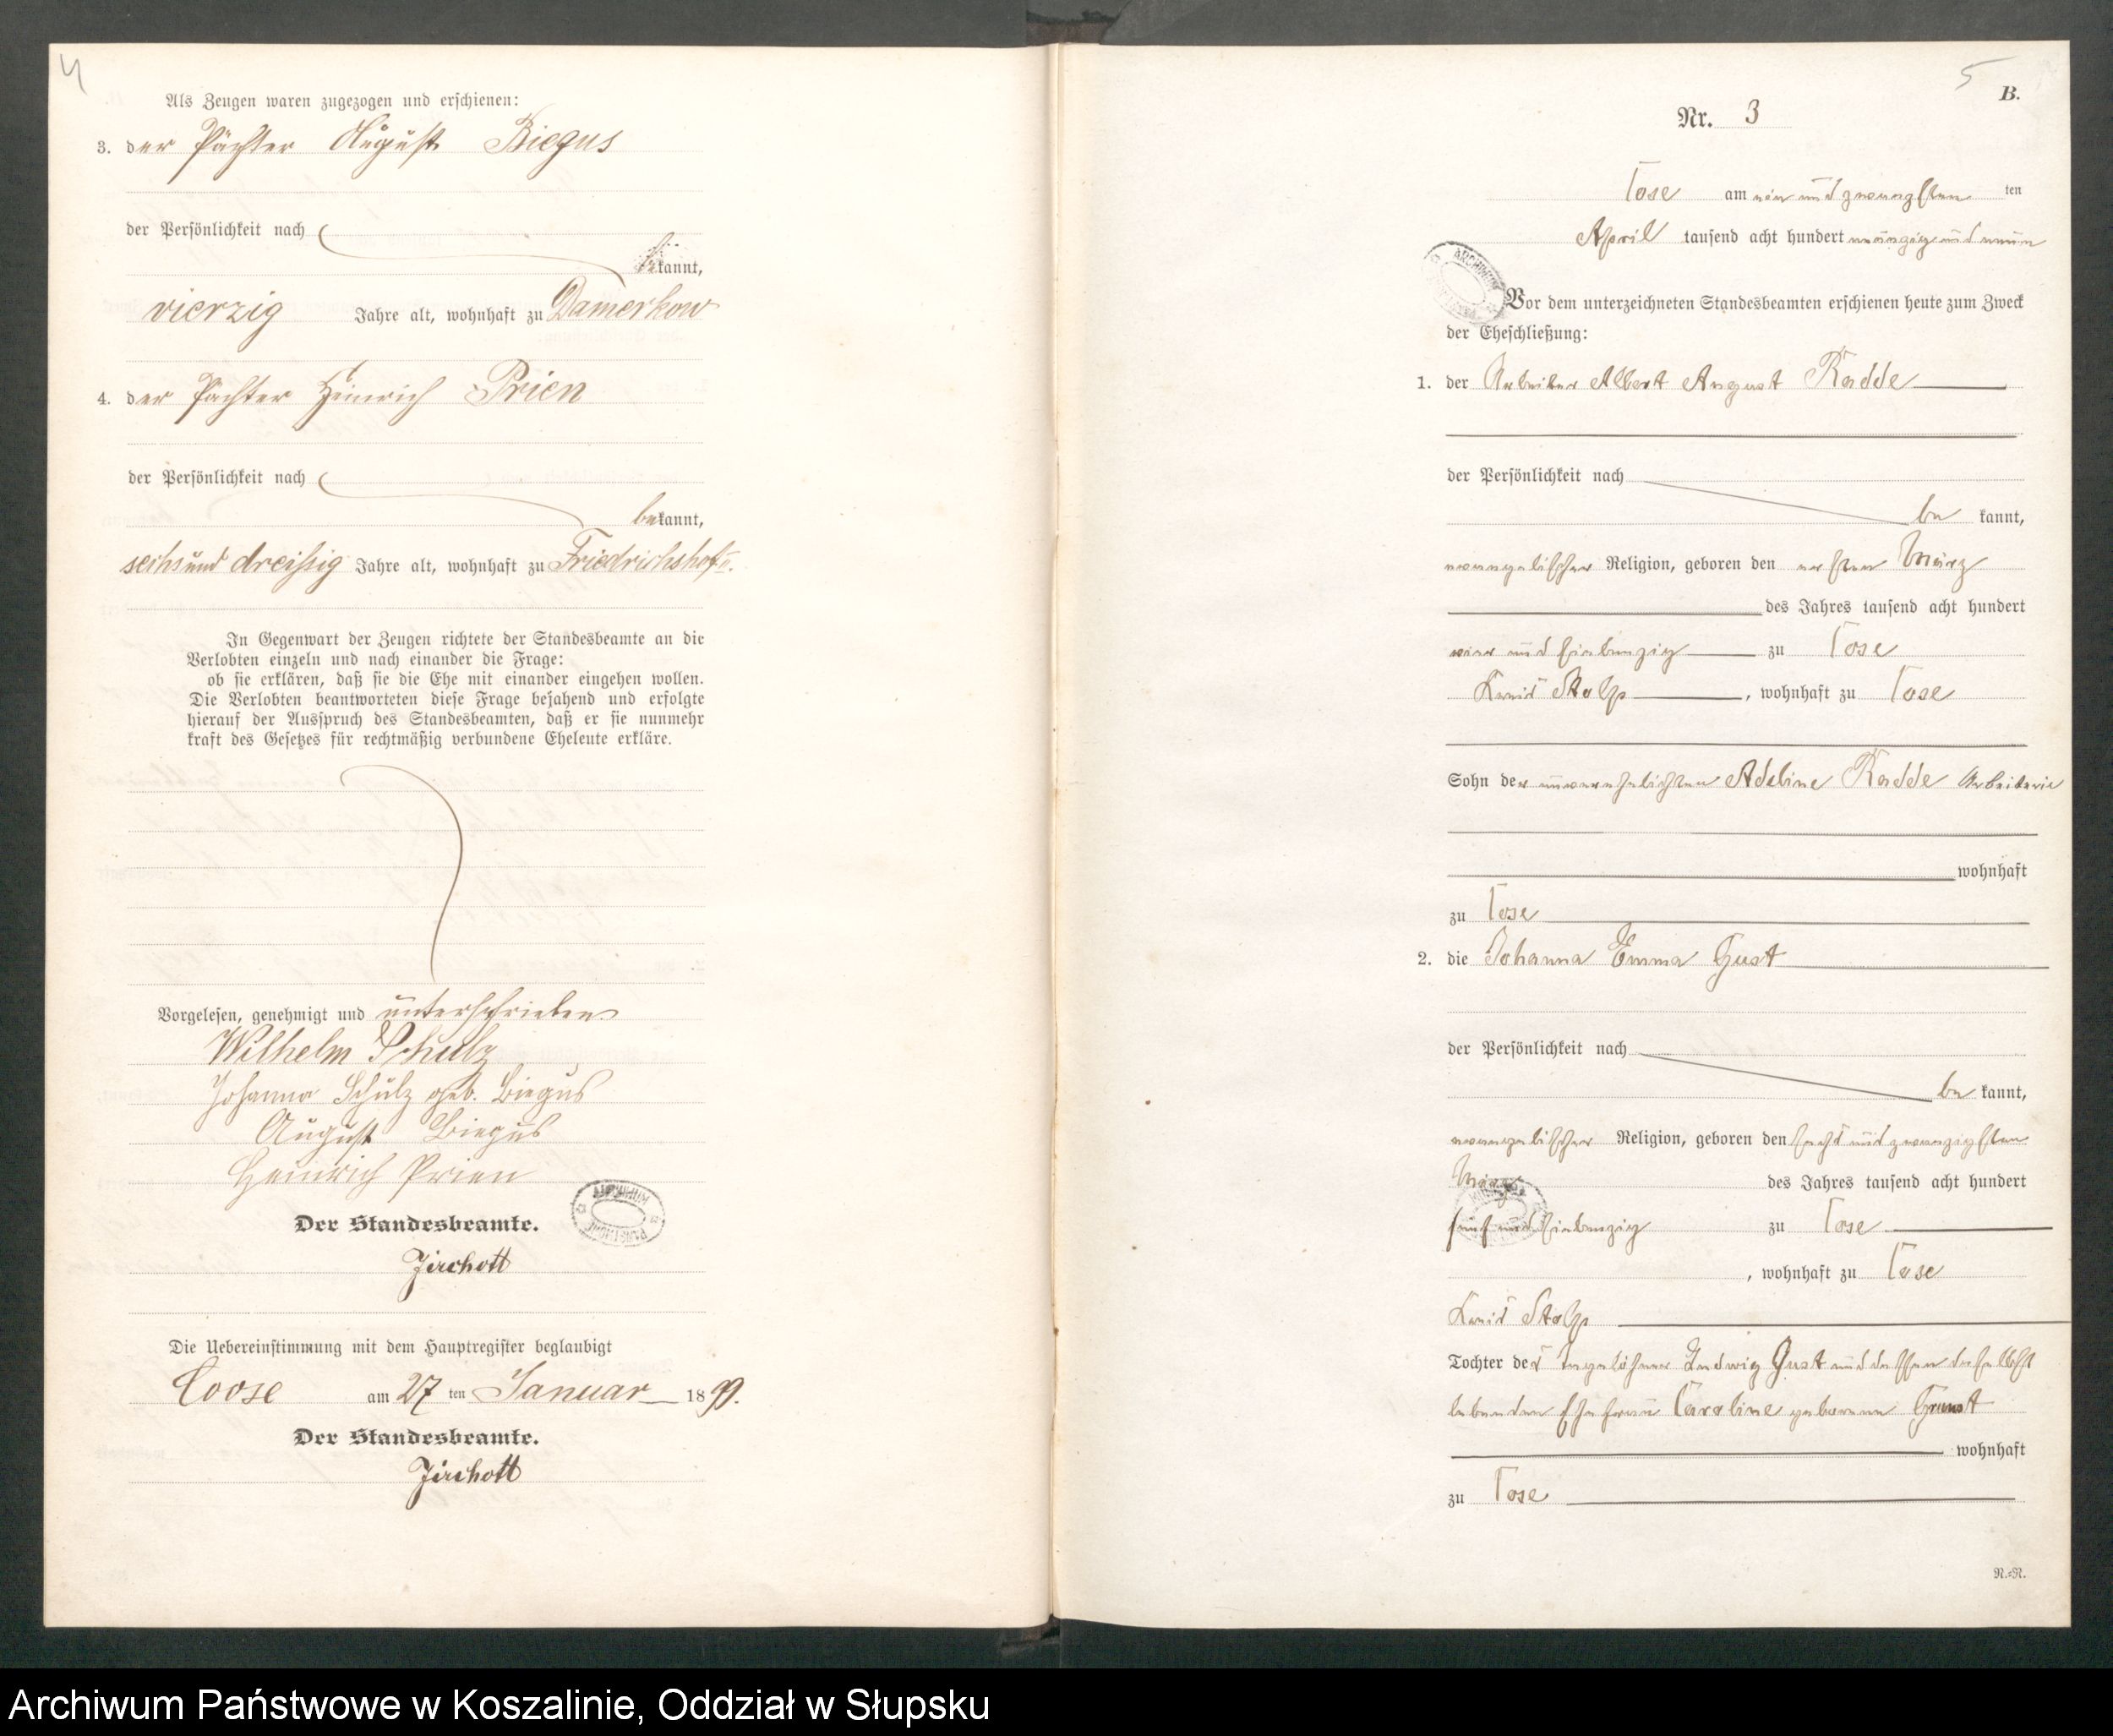 4
Als Zeugen waren zugezogen und erschienen:
3. der Pächter August Biegus
der Persönlichkeit nach
bekannt,
vierzig Jahre alt, wohnhaft zu Damerkow
4. der Pächter Heinrich Prien
der Persönlichkeit nach
bekannt,
sechsund dreissig Jahre alt, wohnhaft zu Friedrichshof
In Gegenwart der Zeugen richtete der Standesbeamte an die
Verlobten einzeln und nach einander die Frage:
ob sie erklären, daß sie die Ehe mit einander eingehen wollen.
Die Verlobten beantworteten diese Frage bejahend und erfolgte
hierauf der Ausspruch des Standesbeamten, daß er sie nunmehr
kraft des Gesetzes für rechtmäßig verbundene Eheleute erkläre.
Vorgelesen, genehmigt und unterschrieben
Wilhelm Schulz
Johanna Schulz geb. Biegus
August Biegus
Heinrich Prien
Der Standesbeamte.
Jirchott
Die Uebereinstimmung mit dem Hauptregister beglaubigt
Loose am 27 ten Januar 1899.
Der Standesbeamte.
Jirchott
5
B.
Nr. 3
Lose am ein und zwanzigsten ten
April tausend acht hundert neunzig und neun
Vor dem unterzeichneten Standesbeamten erschienen heute zum Zweck
der Eheschließung:
1. der Arbeiter Albert August Radde
der Persönlichkeit nach
be kannt,
evangelischer Religion, geboren den ersten März
des Jahres tausend acht hundert
vier und siebenzig zu Lose
Kreis Stolp, wohnhaft zu Lose
Sohn der unverehelichten Adeline Radde Arbeiterin
wohnhaft
zu Lose
2. die Johanna Emma Gust
der Persönlichkeit nach
be kannt,
evangelischer Religion, geboren den sechs und zwanzigsten
März des Jahres tausend acht hundert
fünf und siebenzig zu Lose
, wohnhaft zu Lose
Kreis Stolp
Tochter des Tagelöhner Ludwig Gust und dessen daselbst
lebenden Ehefrau Caroline geborene
wohnhaft
zu Lose
R.=R.
Archiwum Państwowe w Koszalinie, Oddział w Słupsku